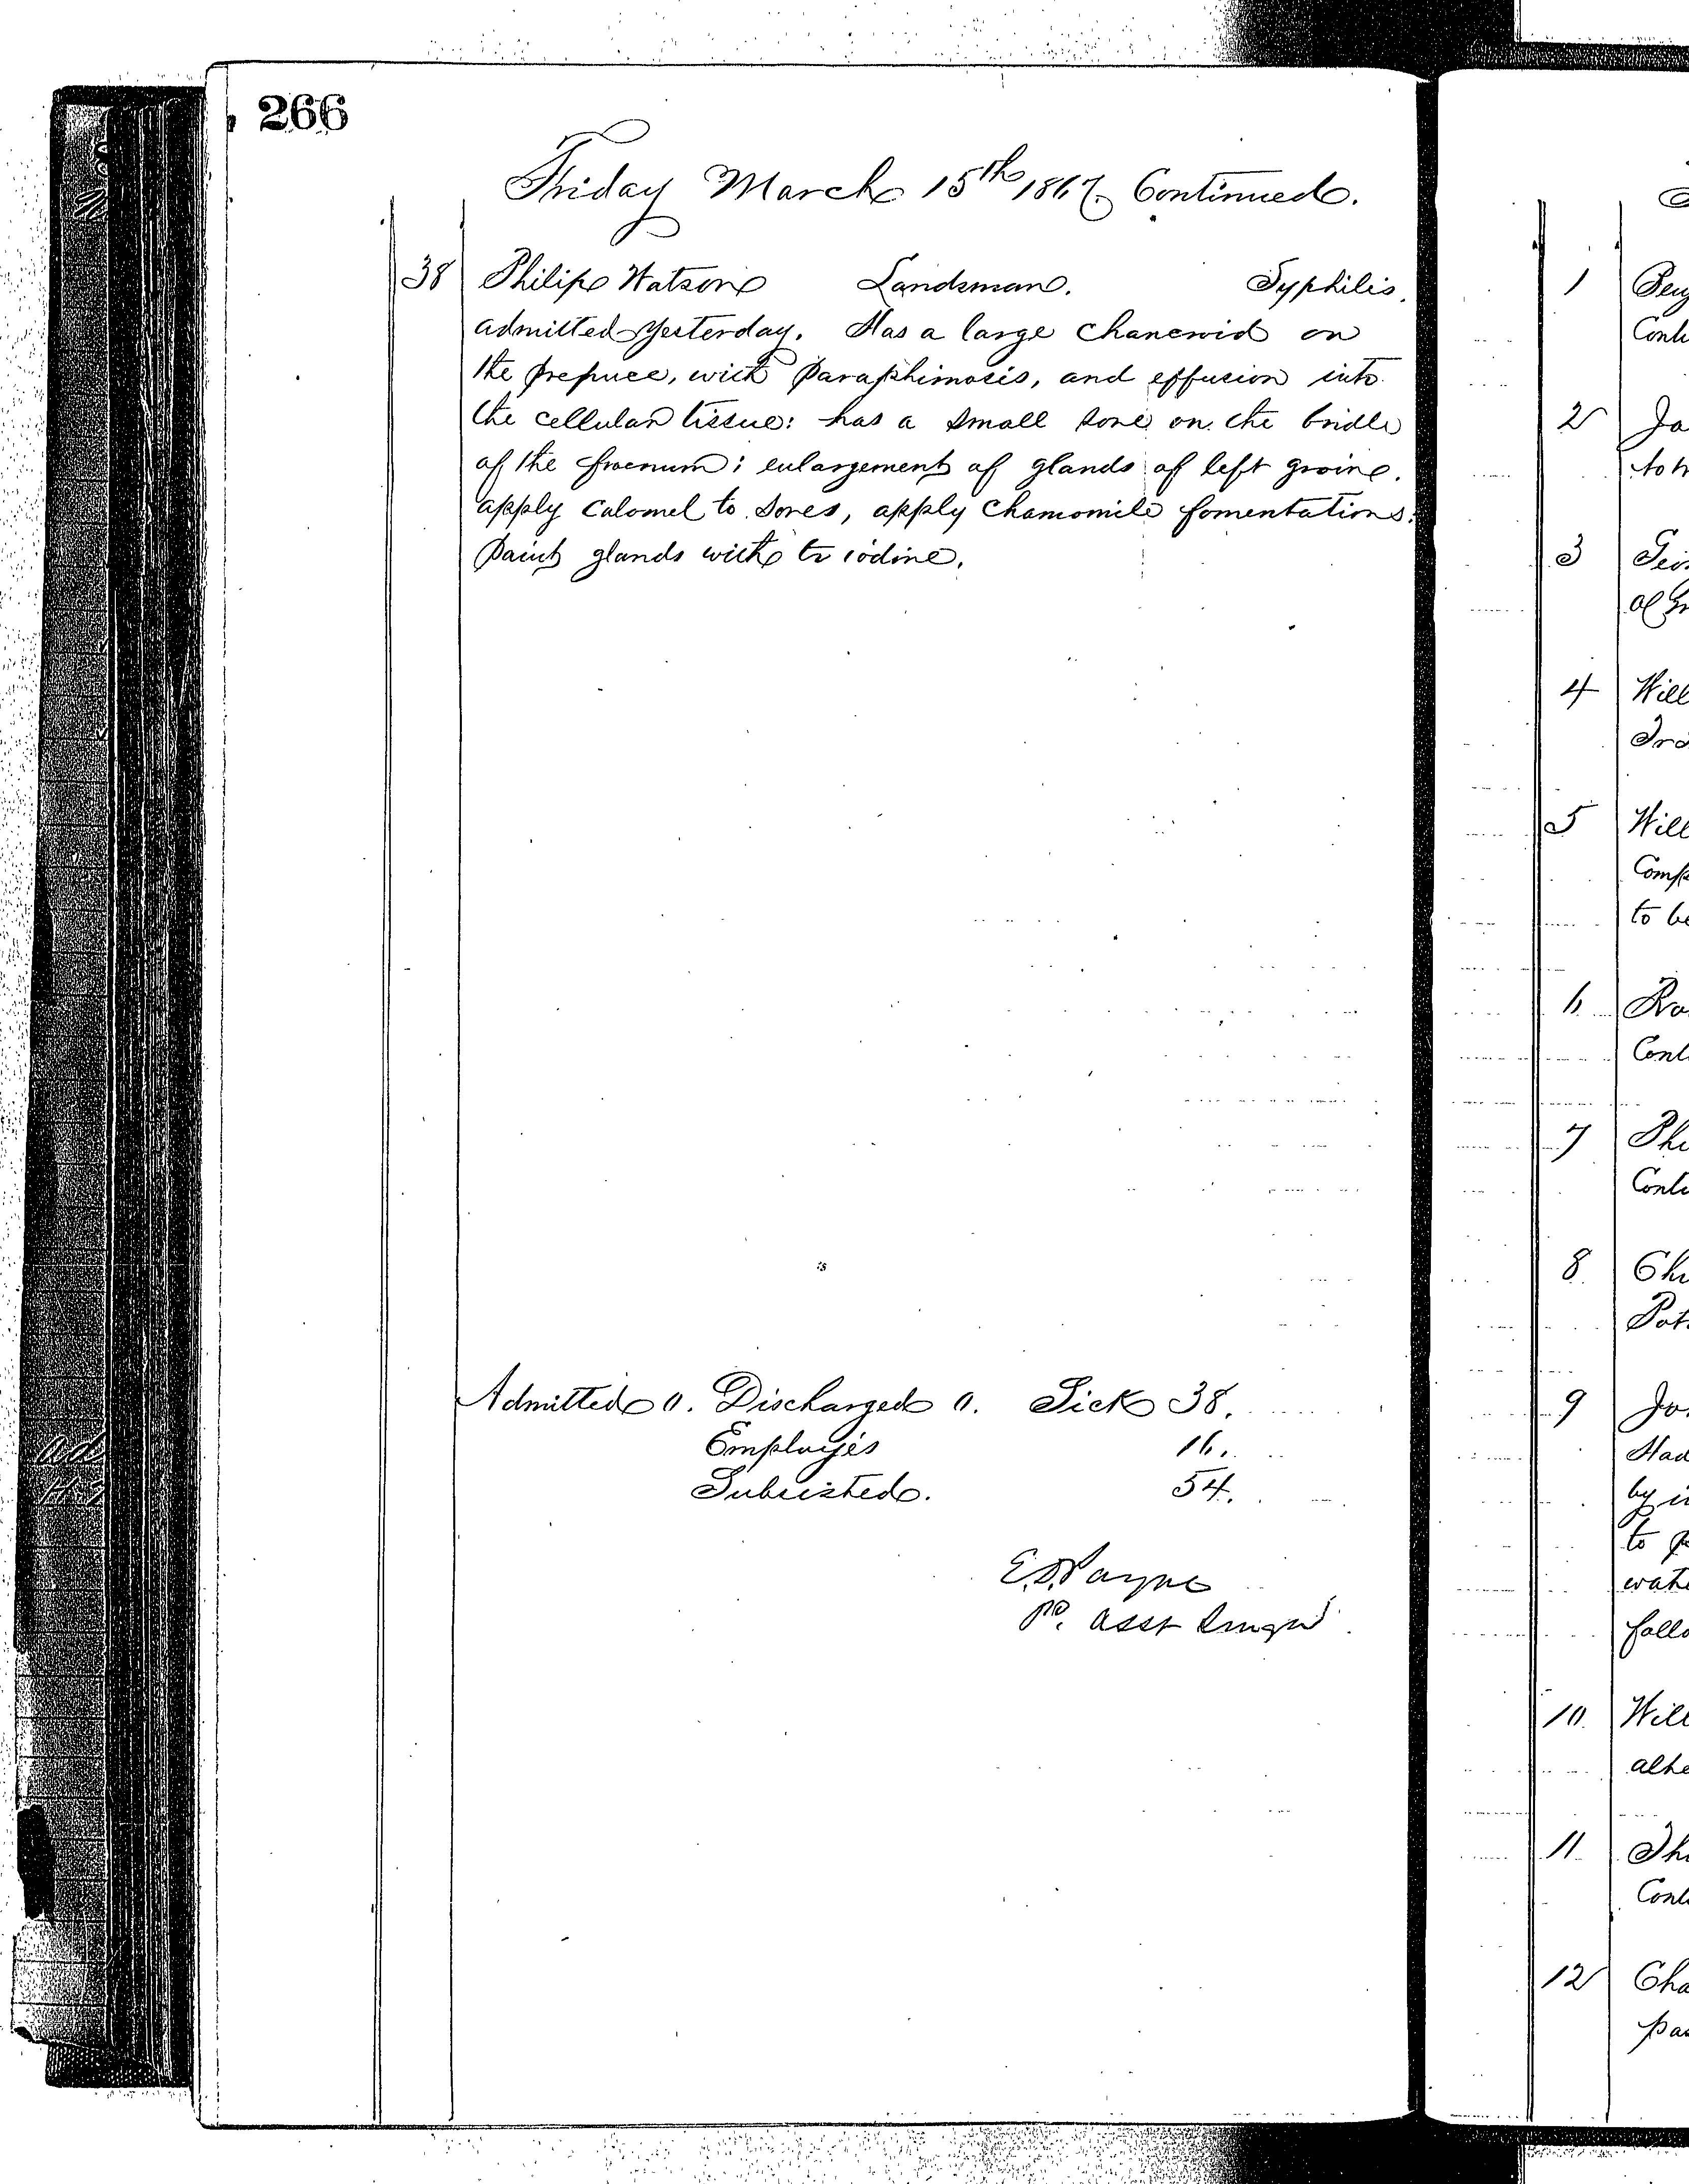 266
Friday March 15th 1867. Continued.
38 Philip Watson Landsman. Syphilis.
admitted yesterday. Has a large chancroid on
the prepuce, with paraphimosis, and effusion into
the cellular tissue: has a small sore on the bridle
of the froenum; enlargement of glands of left groin.
apply calomel to sores, apply chamomile fomentations:
paint glands with tr iodine.
Admitted 0. Discharged 0. Sick 38.
Employés 16.
Subsisted. 54.
E.S. Payne
Pd. Asst Surgn
1
Conti
2 Ja
to h
3 Geo
of Gr
4 Will
5 Will
Comp
to be
6 Ro
Conti
7 Phi
Conti
8 Ch
Pot
9 Jo
Had
by i
to p
wate
follo
10 Will
11 Th
Conti
12 Cha
pa